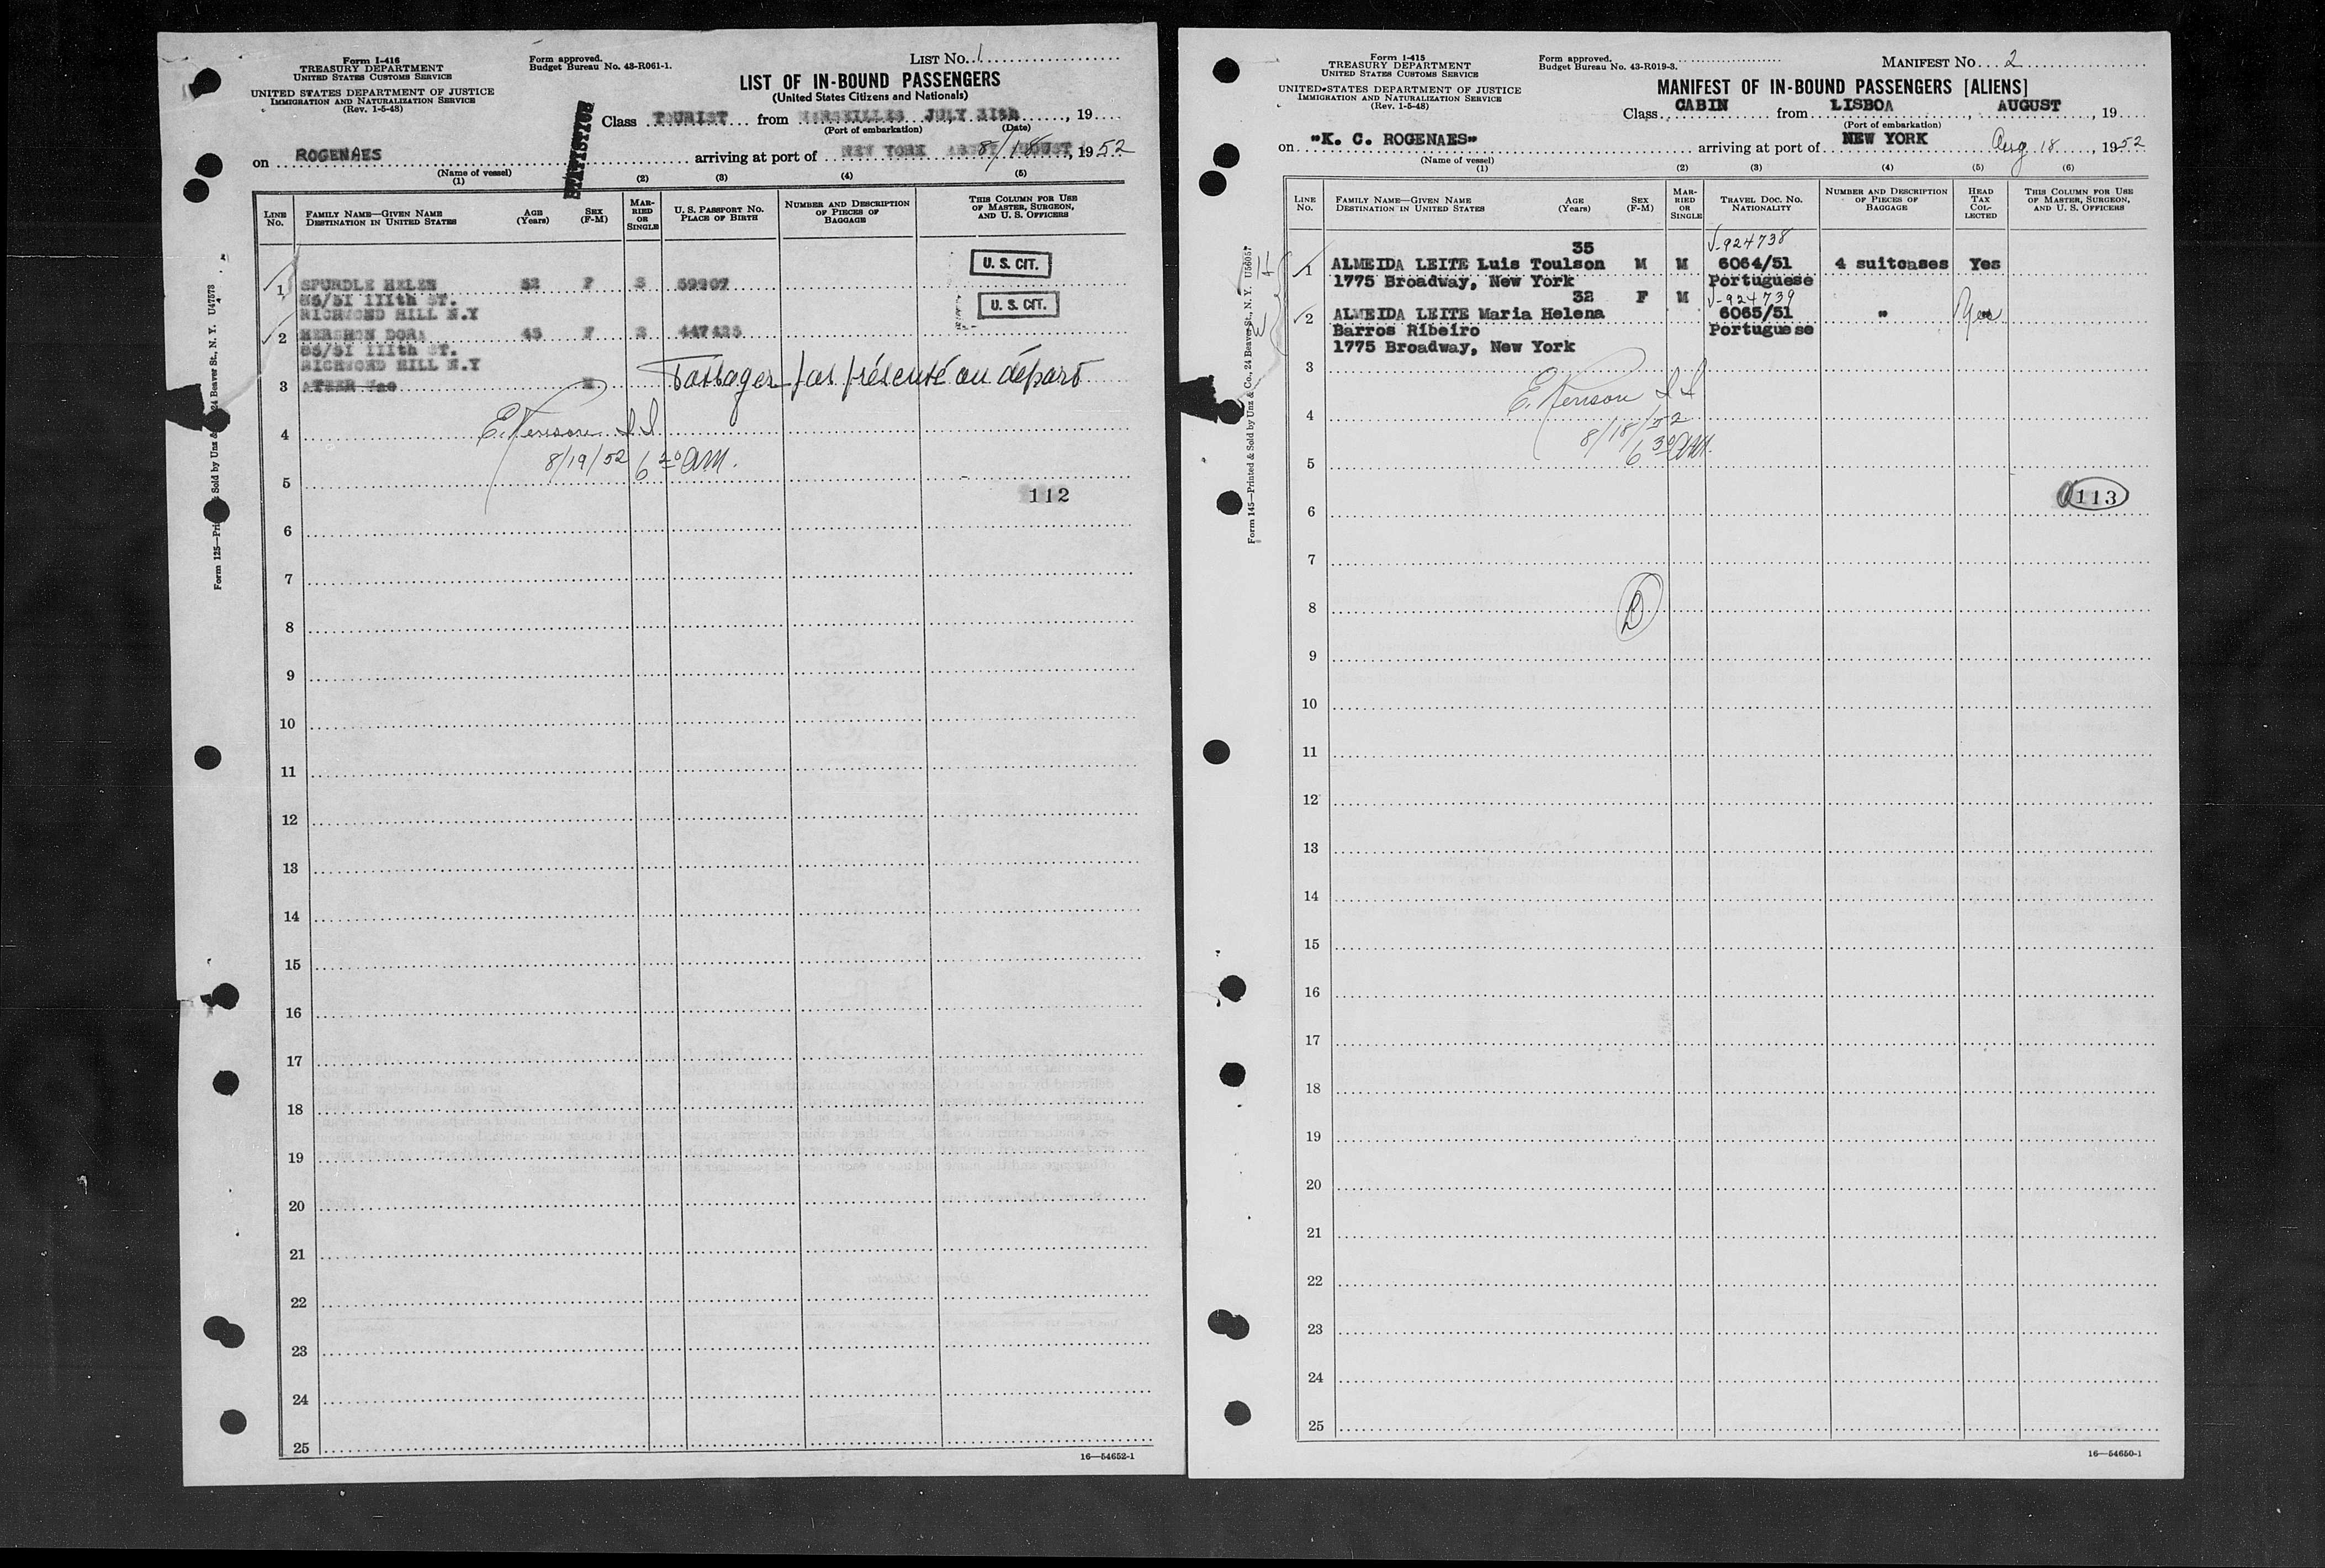 Form I-416
TREASURY DEPARTMENT
UNITED STATES CUSTOMS SERVICE
UNITED STATES DEPARTMENT OF JUSTICE
IMMIGRATION AND NATURALIZATION SERVICE
(Rev. 1-5-48)
Form approved.
Budget Bureau No. 43-R061-1.
LIST No. 1
LIST OF IN-BOUND PASSENGERS
(United States Citizens and Nationals)
STATISTICS
Class TOURIST from MARSEILLES JULY 31th, 19
(Port of embarkation) (Date)
on ROGENAES arriving at port of NEW YORK 8/18 AUGUST, 1952
(Name of vessel)
(1) (2) (3) (4) (5)
LINE No. FAMILY NAME—GIVEN NAME DESTINATION IN UNITED STATES AGE (Years) SEX (F-M) MARRIED OR SINGLE U. S. PASSPORT NO. PLACE OF BIRTH NUMBER AND DESCRIPTION OF PIECES OF BAGGAGE THIS COLUMN FOR USE OF MASTER, SURGEON, AND U. S. OFFICERS
U. S. CIT.
1 SPURDLE HELEN 52 F S 59207
85/51 111th ST.
RICHMOND HILL N.Y
U. S. CIT.
2 MERSHON DORA 45 F S 447425
85/51 111th ST.
RICHMOND HILL N.Y
3 Passager pas présenté au départ
4 E. Kenison I I
8/19/52 6 30 AM.
5
112
6
7
8
9
10
11
12
13
14
15
16
17
18
19
20
21
22
23
24
25
16—54652-1
Form I-415
TREASURY DEPARTMENT
UNITED STATES CUSTOMS SERVICE
UNITED STATES DEPARTMENT OF JUSTICE
IMMIGRATION AND NATURALIZATION SERVICE
(Rev. 1-5-48)
Form approved.
Budget Bureau No. 43-R019-3.
MANIFEST No. 2
MANIFEST OF IN-BOUND PASSENGERS [ALIENS]
Class CABIN from LISBOA, AUGUST, 19
(Port of embarkation)
on "K. C. ROGENAES" arriving at port of NEW YORK Aug 18, 1952
(Name of vessel)
(1) (2) (3) (4) (5) (6)
LINE No. FAMILY NAME—GIVEN NAME DESTINATION IN UNITED STATES AGE (Years) SEX (F-M) MARRIED OR SINGLE TRAVEL DOC. NO. NATIONALITY NUMBER AND DESCRIPTION OF PIECES OF BAGGAGE HEAD TAX COLLECTED THIS COLUMN FOR USE OF MASTER, SURGEON, AND U. S. OFFICERS
35 V-924738
1 ALMEIDA LEITE Luis Toulson M M 6064/51 4 suitcases Yes
1775 Broadway, New York Portuguese
32 F M V-924739
2 ALMEIDA LEITE Maria Helena 6065/51 " Yes
Barros Ribeiro Portuguese
1775 Broadway, New York
3
E. Kenison I I
4
8/18/52
6 30 AM.
5
113
6
7
8
9
10
11
12
13
14
15
16
17
18
19
20
21
22
23
24
25
16—54650-1
Form 145—Printed & Sold by Unz & Co., 24 Beaver St., N. Y. U56057